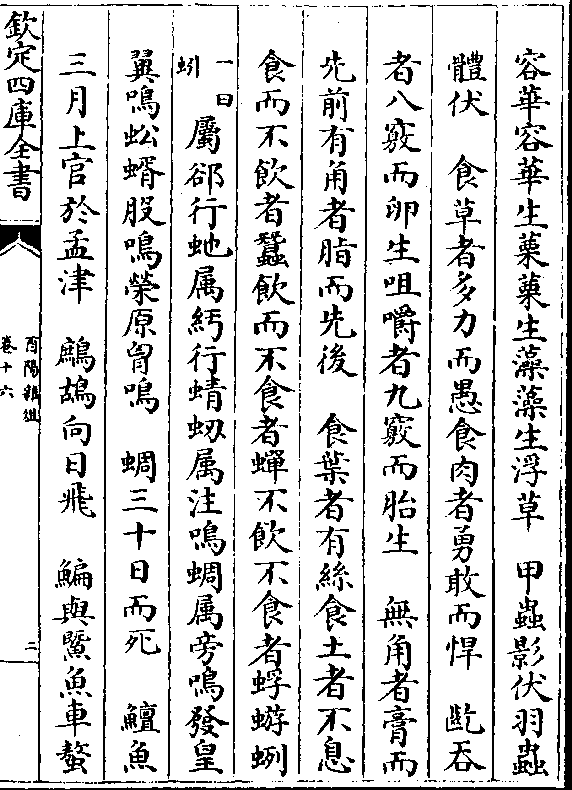 容華容華生蔈蔈生藻藻生浮草　甲蟲影伏羽蟲
體伏　食草者多力而愚食肉者勇敢而悍　齕吞
者八竅而卵生咀嚼者九竅而胎生　無角者膏而
先前有角者脂而先後　食葉者有絲食土者不息
食而不飲者蠶飲而不食者蟬不飲不食者蜉蝣蛚
一曰
蚓
屬郤行虵属紆行蜻蛚属注鳴蜩属旁鳴發皇
翼鳴蚣蝑股鳴榮原胷鳴　蜩三十日而死　鱣魚
三月上官於孟津　鷓鴣向日飛　鯿與䱜魚車螯
欽定四庫全書
酉陽雜俎
卷十六
三